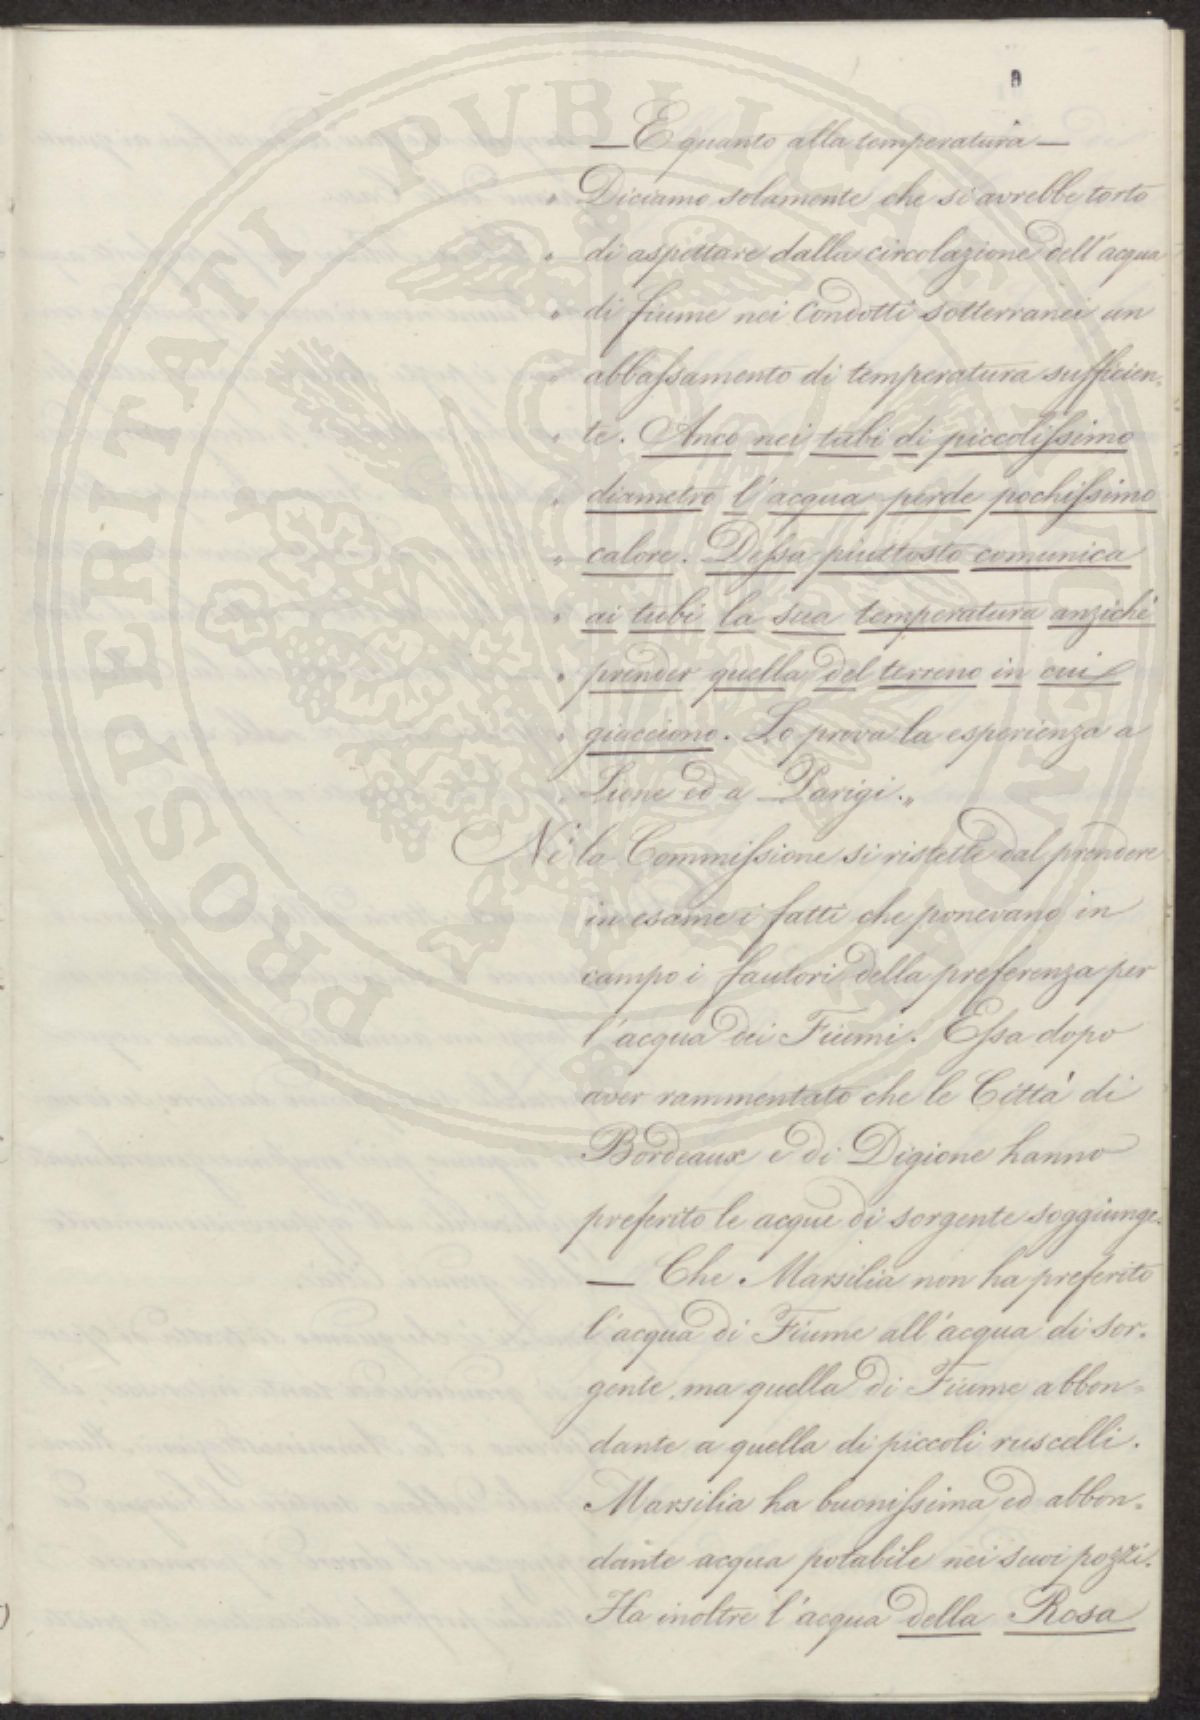 — E quanto alla temperatura —
" Diciamo solamente che si avrebbe torto
" di aspettare dalla circolazione dell'acqua
" di fiume nei Condotti sotterranei un
" abbassamento di temperatura sufficien-
" te. Anco nei tubi di piccolissimo
" diametro l'acqua perde pochissimo
" calore. Dessa piuttosto comunica
" ai tubi la sua temperatura anzichè
" prender quella del terreno in cui
" giacciono. Lo prova la esperienza a
" Lione ed a Parigi."
Nè la Commissione si ristette dal prendere
in esame i fatti che ponevano in
campo i fautori della preferenza per
l'acqua dei Fiumi. Essa dopo
aver rammentato che le Città di
Bordeaux e di Digione hanno
preferito le acque di sorgente soggiunge.
— Che Marsilia non ha preferito
l'acqua di Fiume all'acqua di sor-
gente, ma quella di Fiume abbon-
dante a quella di piccoli ruscelli.
Marsilia ha buonissima ed abbon-
dante acqua potabile nei suoi pozzi.
Ha inoltre l'acqua della Rosa
PROSPERITATI PUBLICAE AUGENDAE